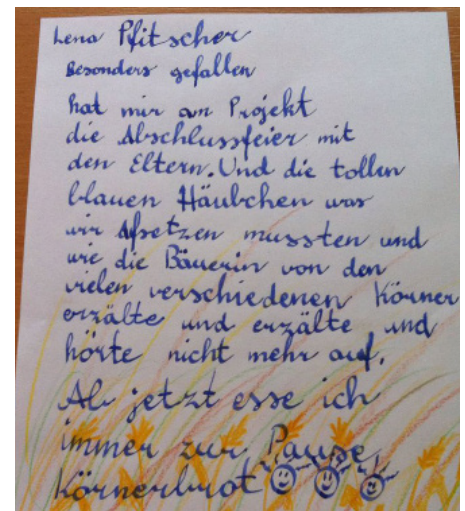 Lena Pfitscher
Besonders gefallen
hat mir am Projekt
die Abschlussfeier mit
den Eltern. Und die tollen
blauen Häubchen was
wir Afsetzen mussten und
wie die Bäuerin von den
vielen verschiedenen Körner
erzälte und erzälte und
hörte nicht mehr auf.
Ab jetzt esse ich
immer zur Pause
Körnerbrot